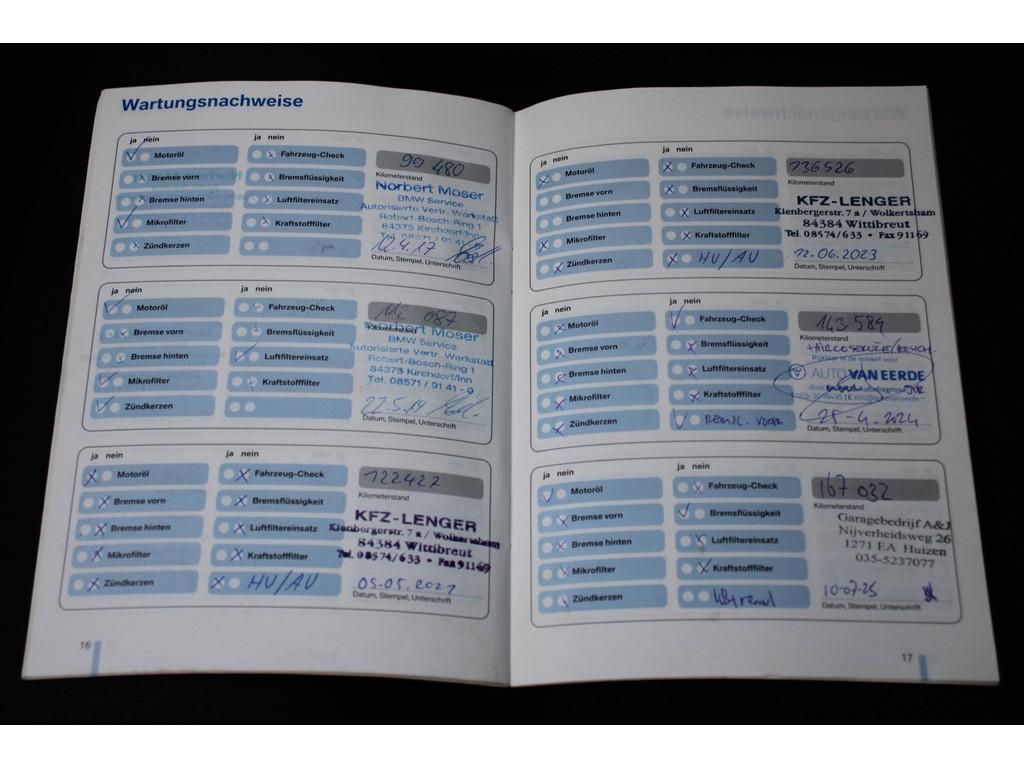 Wartungsnachweise
ja nein
ja nein
Motoröl
Fahrzeug-Check
90 480
Bremse vorn
Bremsflüssigkeit
Kilometerstand
Norbert Moser
Bremse hinten
Luftfiltereinsatz
BMW Service
Autorisierte Vertr. Werkstatt
Mikrofilter
Kraftstofffilter
Robert-Bosch-Ring 1
84375 Kirchdorf/Inn
Tel. 08571 / 91 41 - 0
Zündkerzen
12.4.17
Datum, Stempel, Unterschrift
ja nein
ja nein
Motoröl
Fahrzeug-Check
112 087
Bremse vorn
Bremsflüssigkeit
Kilometerstand
Norbert Moser
Bremse hinten
Luftfiltereinsatz
BMW Service
Autorisierte Vertr. Werkstatt
Robert-Bosch-Ring 1
Mikrofilter
Kraftstofffilter
84375 Kirchdorf/Inn
Tel. 08571 / 91 41 - 0
Zündkerzen
22.5.19
Datum, Stempel, Unterschrift
ja nein
ja nein
Motoröl
Fahrzeug-Check
122427
Bremse vorn
Bremsflüssigkeit
Kilometerstand
KFZ-LENGER
Bremse hinten
Luftfiltereinsatz
Kienbergerstr. 7 a / Wolkertsham
84384 Wittibreut
Mikrofilter
Kraftstofffilter
Tel. 08574/633 • Fax 91169
Zündkerzen
HU/AU
05.05.2021
Datum, Stempel, Unterschrift
16
ja nein
ja nein
Motoröl
Fahrzeug-Check
136526
Bremse vorn
Bremsflüssigkeit
Kilometerstand
KFZ-LENGER
Bremse hinten
Luftfiltereinsatz
Kienbergerstr. 7 a / Wolkertsham
84384 Wittibreut
Mikrofilter
Kraftstofffilter
Tel. 08574/633 • Fax 91169
Zündkerzen
HU/AU
12.06.2023
Datum, Stempel, Unterschrift
ja nein
ja nein
Motoröl
Fahrzeug-Check
143 589
Bremse vorn
Bremsflüssigkeit
Bremse hinten
Luftfiltereinsatz
AUTO VAN EERDE
Mikrofilter
Kraftstofffilter
Zündkerzen
25-4-2024
Datum, Stempel, Unterschrift
ja nein
ja nein
Motoröl
Fahrzeug-Check
167 032
Bremse vorn
Bremsflüssigkeit
Kilometerstand
Garagebedrijf A&J
Bremse hinten
Luftfiltereinsatz
Nijverheidsweg 26
1271 EA Huizen
Mikrofilter
Kraftstofffilter
035-5237077
Zündkerzen
10-07-25
Datum, Stempel, Unterschrift
17